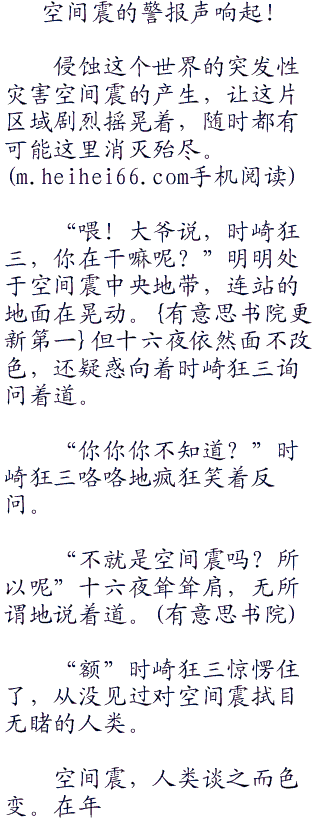 空间震的警报声响起！
侵蚀这个世界的突发性
灾害空间震的产生，让这片
区域剧烈摇晃着，随时都有
可能这里消灭殆尽。
(m.heihei66.com手机阅读)
“喂！大爷说，时崎狂
三，你在干嘛呢？”明明处
于空间震中央地带，连站的
地面在晃动。{有意思书院更
新第一}但十六夜依然面不改
色，还疑惑向着时崎狂三询
问着道。
“你你你不知道？”时
崎狂三咯咯地疯狂笑着反
问。
“不就是空间震吗？所
以呢”十六夜耸耸肩，无所
谓地说着道。(有意思书院)
“额”时崎狂三惊愣住
了，从没见过对空间震拭目
无睹的人类。
空间震，人类谈之而色
变。在年